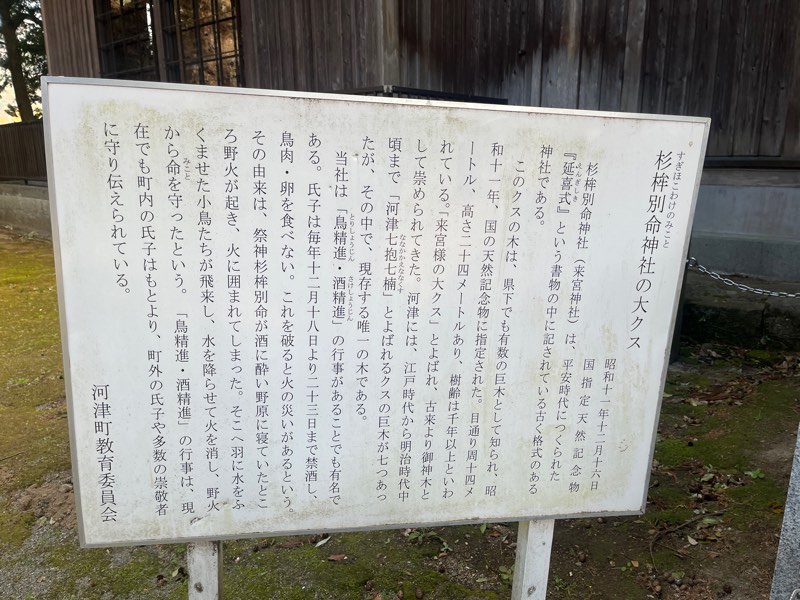 杉桙別命神社の大クス
すぎほこわけのみこと
昭和十一年十二月十六日
国指定天然記念物
杉桙別命神社（来宮神社）は、平安時代につくられた
『延喜式』という書物の中に記されている古く格式のある
えんぎしき
神社である。
このクスの木は、県下でも有数の巨木として知られ、昭
和十一年、国の天然記念物に指定された。目通り周十四メ
ートル、高さ二十四メートルあり、樹齢は千年以上といわ
れている。「来宮様の大クス」とよばれ、古来より御神木と
して崇められてきた。河津には、江戸時代から明治時代中
頃まで「河津七抱七楠」とよばれるクスの巨木が七つあっ
ななかかえななくす
たが、その中で、現存する唯一の木である。
当社は「鳥精進・酒精進」の行事があることでも有名で
とりしょうじん さけしょうじん
ある。氏子は毎年十二月十八日より二十三日まで禁酒し、
鳥肉・卵を食べない。これを破ると火の災いがあるという
その由来は、祭神杉桙別命が酒に酔い野原に寝ていたとこ
ろ野火が起き、火に囲まれてしまった。そこへ羽に水をふ
くませた小鳥たちが飛来し、水を降らせて火を消し、野火
から命を守ったという。「鳥精進・酒精進」の行事は、現
みこと
在でも町内の氏子はもとより、町外の氏子や多数の崇敬者
に守り伝えられている。
河津町教育委員会